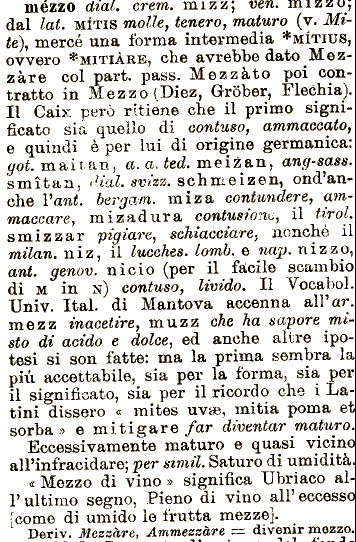 mézzo dial. crem. mizz; ven. mizzo;
dal lat. MÍTIS molle, tenero, maturo (v. Mi-
te), mercé una forma intermedia *MÍTIUS,
ovvero *MITIÀRE, che avrebbe dato Mez-
zàre col part. pass. Mezzàto poi con-
tratto in Mezzo (Diez, Gröber, Flechia).
Il Caix però ritiene che il primo signi-
ficato sia quello di contuso, ammaccato,
e quindi è per lui di origine germanica:
got. maitan, a. a. ted. meizan, ang-sass.
smîtan, dial. svizz. schmeizen, ond'an-
che l'ant. bergam. miza contundere, am-
maccare, mizadura contusione, il tirol.
smizzar pigiare, schiacciare, nonché il
milan. niz, il lucches. lomb. e nap. nizzo,
ant. genov. nicio (per il facile scambio
di M in N) contuso, livido. Il Vocabol.
Univ. Ital. di Mantova accenna all'ar.
mezz inacetire, muzz che ha sapore mi-
sto di acido e dolce, ed anche altre ipo-
tesi si son fatte: ma la prima sembra la
più accettabile, sia per la forma, sia per
il significato, sia per il ricordo che i La-
tini dissero « mites uvæ, mitia poma et
sorba » e mitigare far diventar maturo.
Eccessivamente maturo e quasi vicino
all'infracidare; per simil. Saturo di umidità.
« Mezzo di vino » significa Ubriaco al-
l'ultimo segno, Pieno di vino all'eccesso
[come di umido le frutta mezze].
Deriv. Mezzàre, Ammezzàre = divenir mezzo.